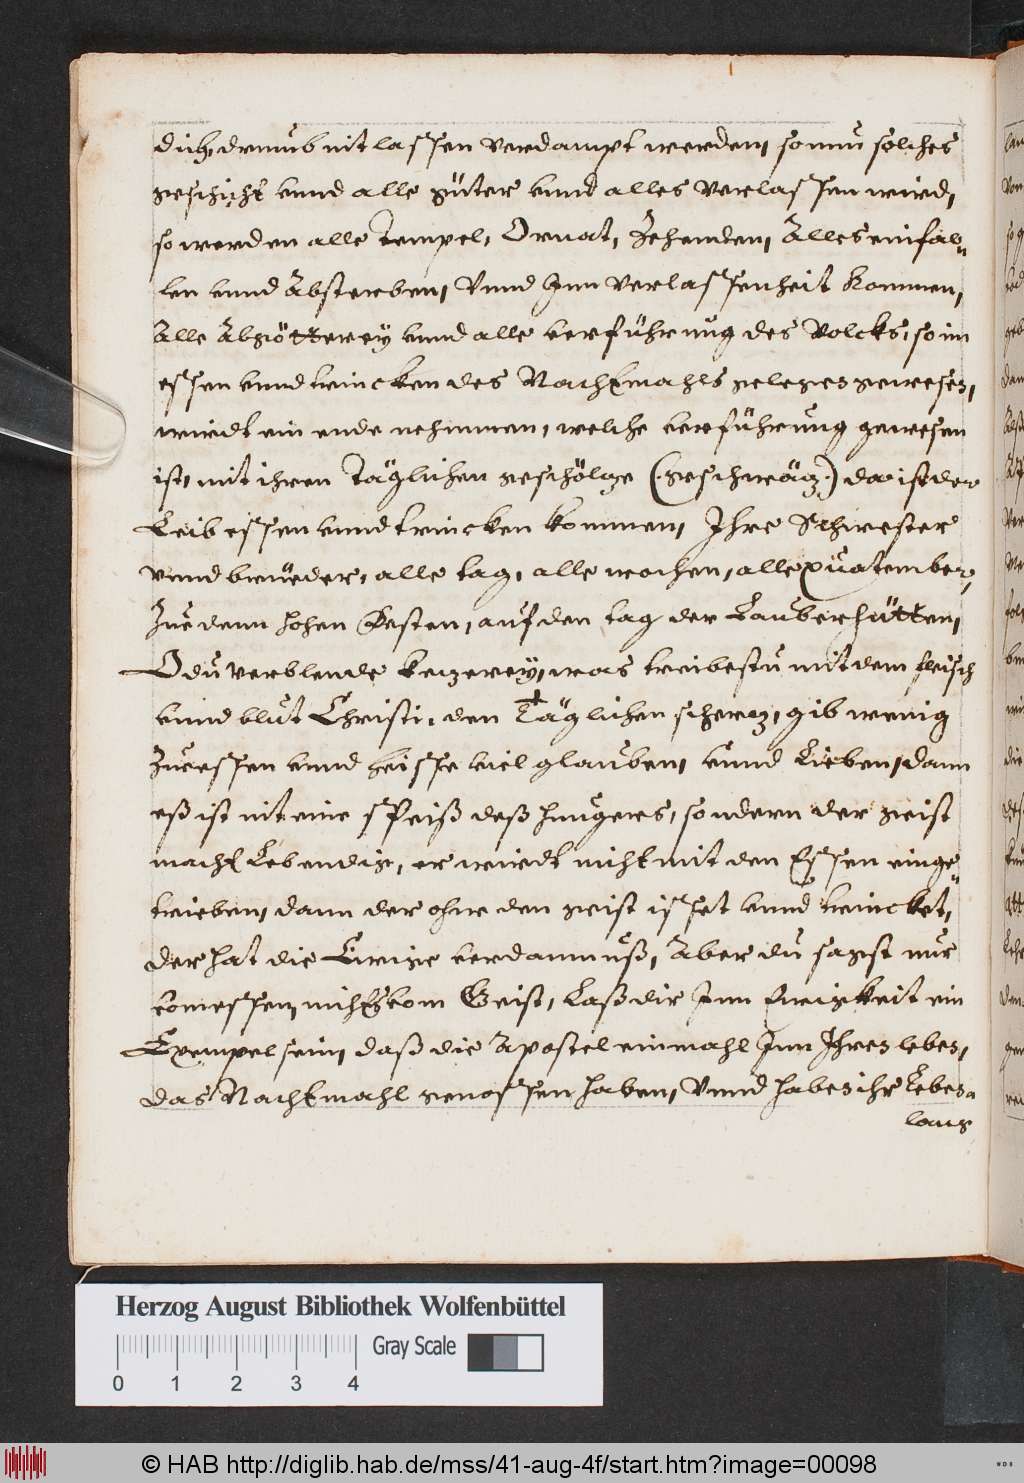 dich, drumb nit lassen verdampt werden, so nun solches
geschicht vnnd alle güter vnnd alles verlassen wird,
so werden alle Tempel, Ornat, Zehenden, Alles einfal„
len vnnd Absterben, Vnnd Inn verlassenheit kommen,
Alle Abgötterey vnnd alle verführung des Volcks, so im
essen vnnd trincken des Nachtmahls gelegen gewesen,
wirdt ein ende nehmmen, welche verführung gewesen
ist, mit ihren Täglichen geschölge (.geschwätz.) da ist der
Leib essen vnnd trincken kommen, Ihre Schwester
vnnd brüeder, alle tag, alle wochen, alle quatember,
Zue denn hohen Festen, auf den tag der Lauberhütten,
O du verblende kezerey, was treibestu mit dem fleisch
vnnd blut Christi, den Täglichen scherz, gib wenig
Zue essen vnnd heisse viel glauben, vnnd Lieben, dann
eß ist nit eine speiß deß hungers, sondern der geist
macht Lebendig, er wirdt nicht mit den Essen einge„
trieben, dann der ohne den geist isset vnnd trincket,
der hat die Ewige verdamnuß, Aber du sagst nur
kom essen, nicht kom Geist, Laß dir Inn Ewigkeit ein
Exempel sein, daß die Apostel einmahl Inn Ihren leben,
das Nachtmahl genossen haben, Vnnd haben ihr Leben„
lang
Herzog August Bibliothek Wolfenbüttel
Gray Scale
0 1 2 3 4
© HAB http://diglib.hab.de/mss/41-aug-4f/start.htm?image=00098